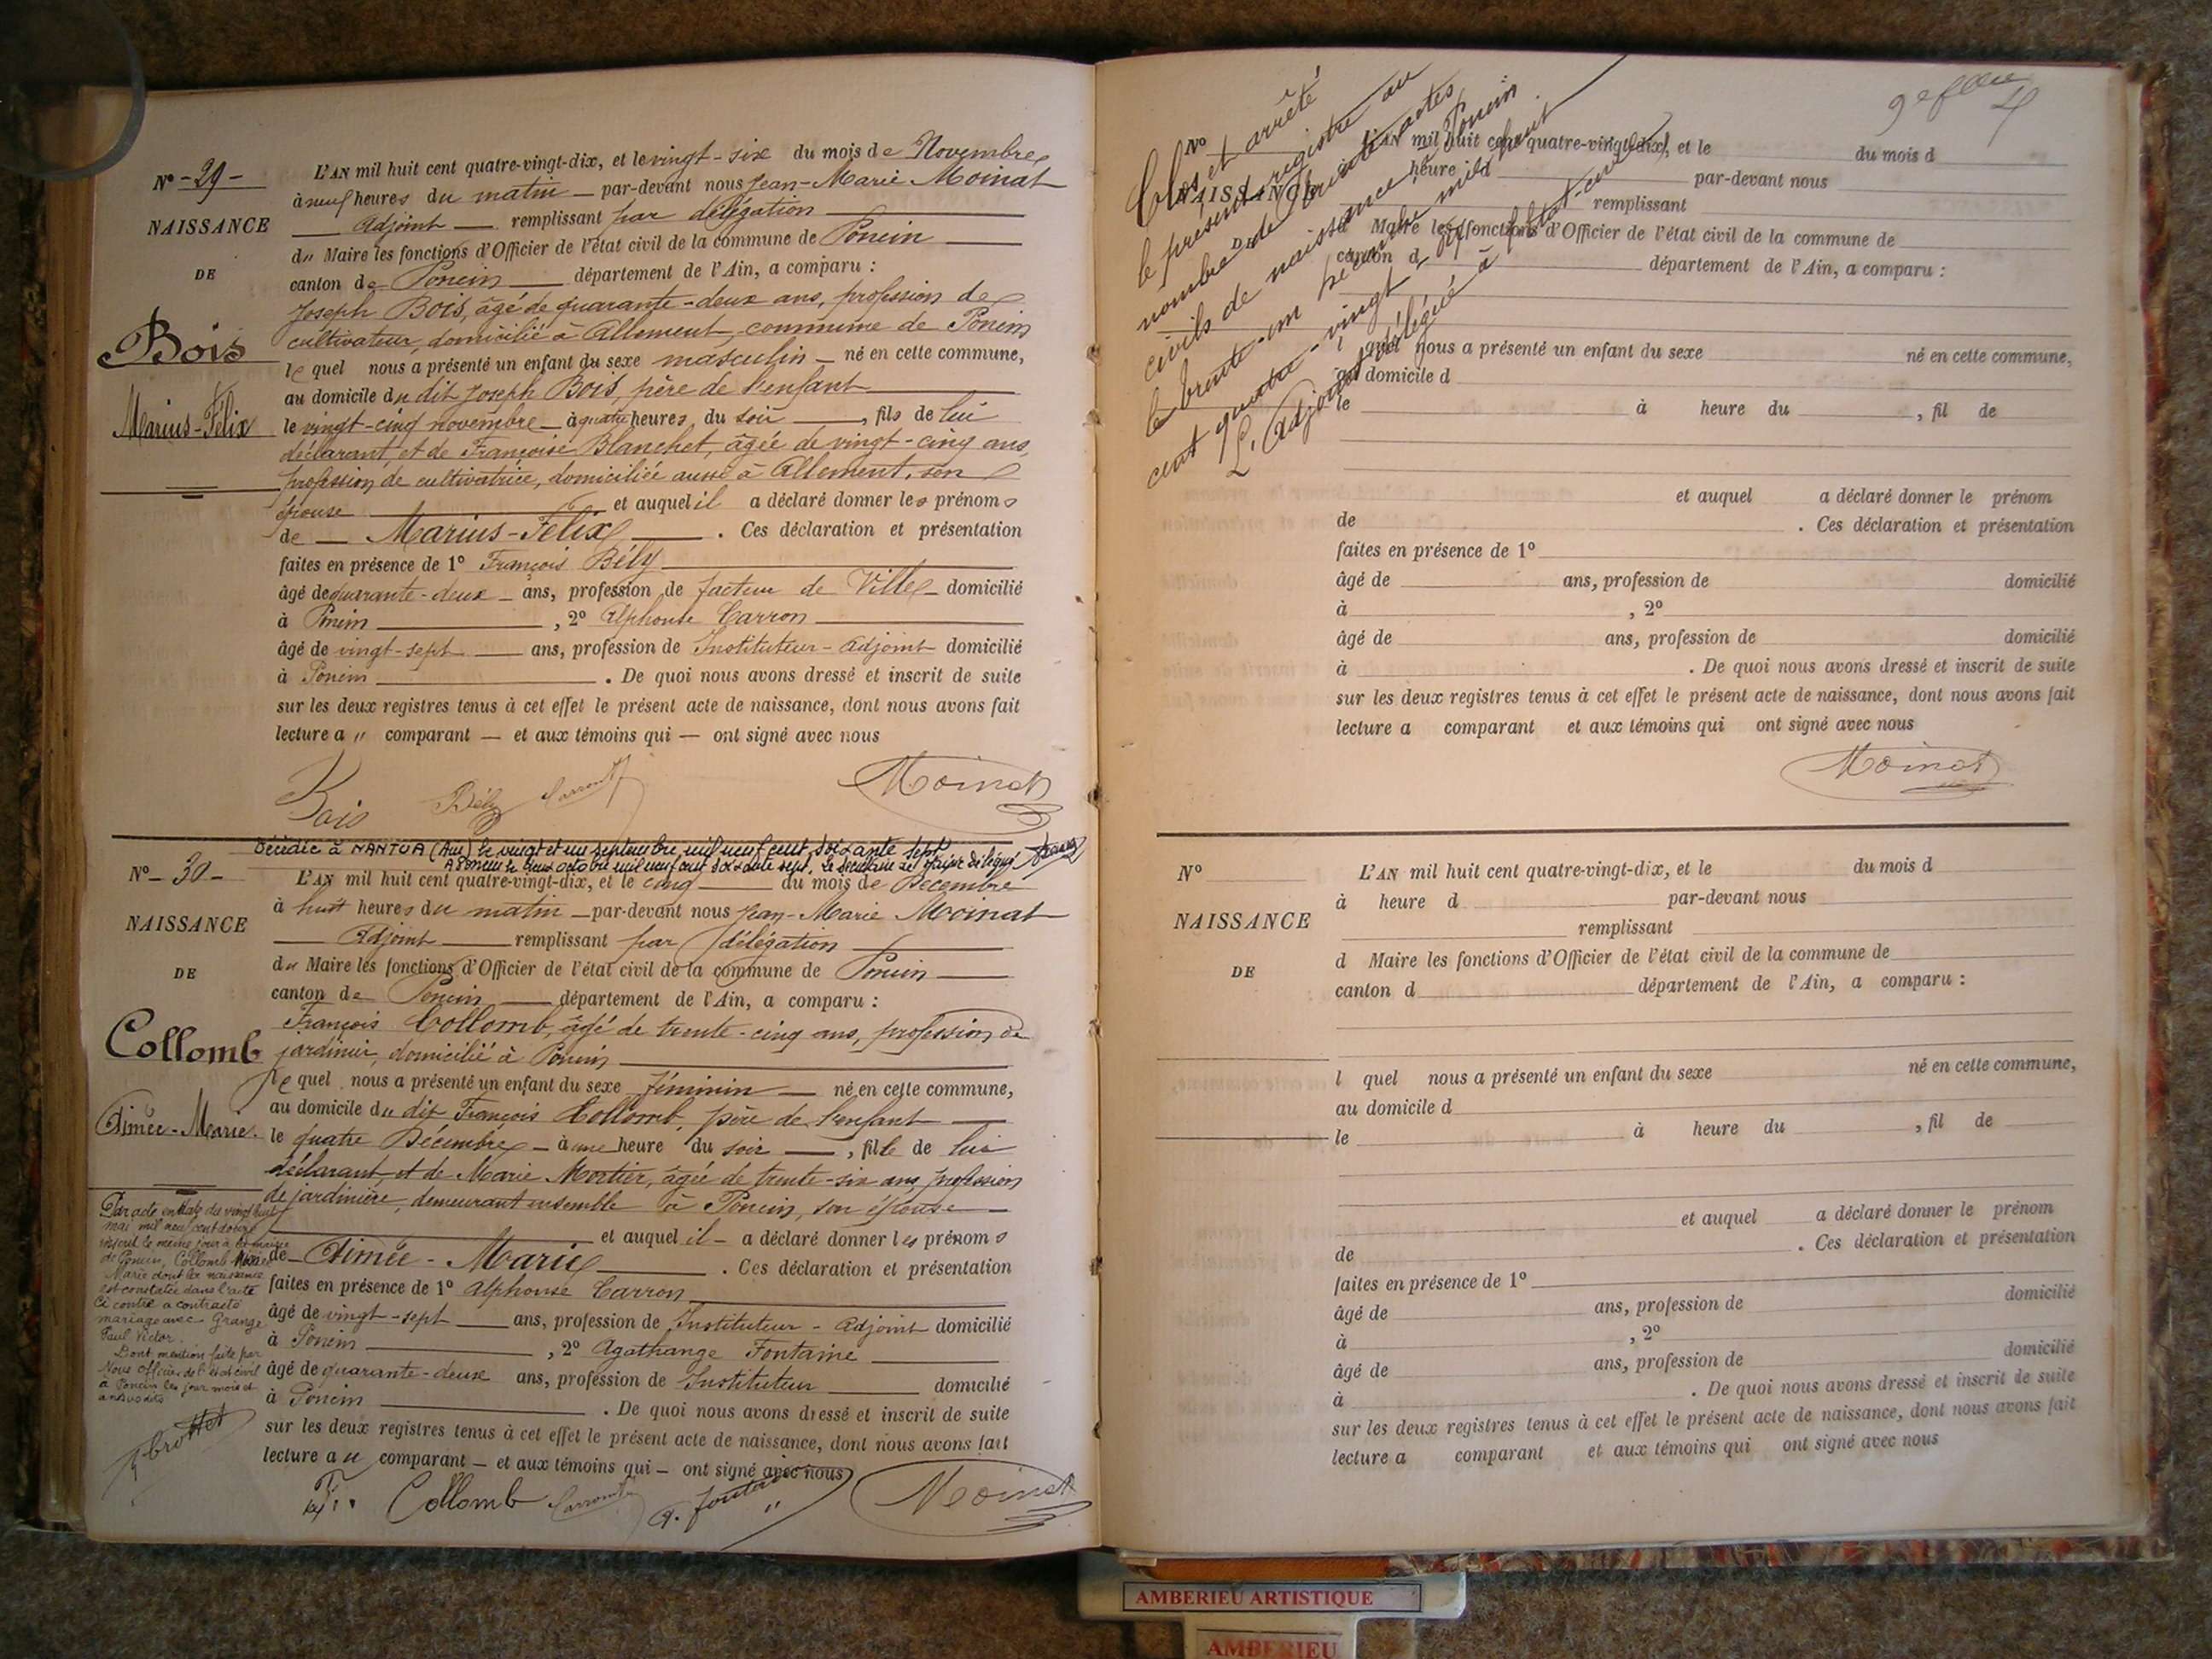 N° - 29 -
NAISSANCE
DE
Bois
Marius-Félix
L'AN mil huit cent quatre-vingt-dix, et le vingt-six du mois de Novembre
à neuf heures du matin par-devant nous Jean-Marie Moinat
Adjoint remplissant par délégation
du Maire les fonctions d'Officier de l'état civil de la commune de Poncin
canton de Poncin département de l'Ain, a comparu :
Joseph Bois, âgé de quarante-deux ans, profession de
cultivateur, domicilié à Allement, commune de Poncin
le quel nous a présenté un enfant du sexe masculin né en cette commune,
au domicile du dit Joseph Bois, père de l'enfant
le vingt-cinq novembre à quatre heures du soir, fils de lui
déclarant, et de Françoise Blanchet, âgée de vingt-cinq ans,
profession de cultivatrice, domiciliée aussi à Allement, son
épouse et auquel il a déclaré donner les prénoms
de Marius-Félix. Ces déclaration et présentation
faites en présence de 1° François Bély
âgé de quarante-deux ans, profession de facteur de Ville domicilié
à Poncin, 2° Alphonse Carron
âgé de vingt-sept ans, profession de Instituteur-Adjoint domicilié
à Poncin. De quoi nous avons dressé et inscrit de suite
sur les deux registres tenus à cet effet le présent acte de naissance, dont nous avons fait
lecture a u comparant et aux témoins qui ont signé avec nous
Bois Bély Carron Moinat
Décédée à NANTUA (Ain) le vingt et un septembre mil neuf cent soixante sept
A Poncin le deux octobre mil neuf cent soixante sept. Le secrétaire de Mairie délégué
N° - 30 -
NAISSANCE
DE
Collomb
Aimée-Marie
L'AN mil huit cent quatre-vingt-dix, et le cinq du mois de Décembre
à huit heures du matin par-devant nous Jean-Marie Moinat
Adjoint remplissant par délégation
du Maire les fonctions d'Officier de l'état civil de la commune de Poncin
canton de Poncin département de l'Ain, a comparu :
François Collomb, âgé de trente-cinq ans, profession de
jardinier, domicilié à Poncin
le quel nous a présenté un enfant du sexe féminin né en cette commune,
au domicile du dit François Collomb, père de l'enfant
le quatre Décembre à une heure du soir, fille de lui
déclarant, et de Marie Mortier, âgée de trente-six ans, profession
de jardinière, demeurant ensemble à Poncin, son épouse
et auquel il a déclaré donner les prénoms
de Aimée-Marie. Ces déclaration et présentation
faites en présence de 1° Alphonse Carron
âgé de vingt-sept ans, profession de Instituteur-Adjoint domicilié
à Poncin, 2° Agathange Fontaine
âgé de quarante-deux ans, profession de Instituteur domicilié
à Poncin. De quoi nous avons dressé et inscrit de suite
sur les deux registres tenus à cet effet le présent acte de naissance, dont nous avons fait
lecture a u comparant et aux témoins qui ont signé avec nous
Collomb Carron A. Fontaine Moinat
Par acte en date du vingt huit
mai mil neuf cent douze
inscrit le même jour à la mairie
de Poncin, Collomb Aimée
Marie dont la naissance
est constatée dans l'acte
ci contre a contracté
mariage avec Grange
Paul Victor.
Dont mention faite par
Nous officier de l'état civil
à Poncin les jour mois et
an susdits
9e
Clos et arrêté
le présent registre au
nombre de trente actes
civils de naissance, à Poncin
le trente-un décembre mil huit
cent quatre-vingt-dix
L'Adjoint délégué à l'état-civil
N°
NAISSANCE
L'AN mil huit cent quatre-vingt-dix, et le du mois d
heure d par-devant nous
remplissant
Maire les fonctions d'Officier de l'état civil de la commune de
canton d département de l'Ain, a comparu :
l quel nous a présenté un enfant du sexe né en cette commune,
au domicile d
le à heure du , fil de
et auquel a déclaré donner le prénom
de . Ces déclaration et présentation
faites en présence de 1°
âgé de ans, profession de domicilié
à , 2°
âgé de ans, profession de domicilié
à . De quoi nous avons dressé et inscrit de suite
sur les deux registres tenus à cet effet le présent acte de naissance, dont nous avons fait
lecture a comparant et aux témoins qui ont signé avec nous
Moinat
N°
NAISSANCE
DE
L'AN mil huit cent quatre-vingt-dix, et le du mois d
à heure d par-devant nous
remplissant
d Maire les fonctions d'Officier de l'état civil de la commune de
canton d département de l'Ain, a comparu :
l quel nous a présenté un enfant du sexe né en cette commune,
au domicile d
le à heure du , fil de
et auquel a déclaré donner le prénom
de . Ces déclaration et présentation
faites en présence de 1°
âgé de ans, profession de domicilié
à , 2°
âgé de ans, profession de domicilié
à . De quoi nous avons dressé et inscrit de suite
sur les deux registres tenus à cet effet le présent acte de naissance, dont nous avons fait
lecture a comparant et aux témoins qui ont signé avec nous
AMBERIEU ARTISTIQUE
AMBERIEU